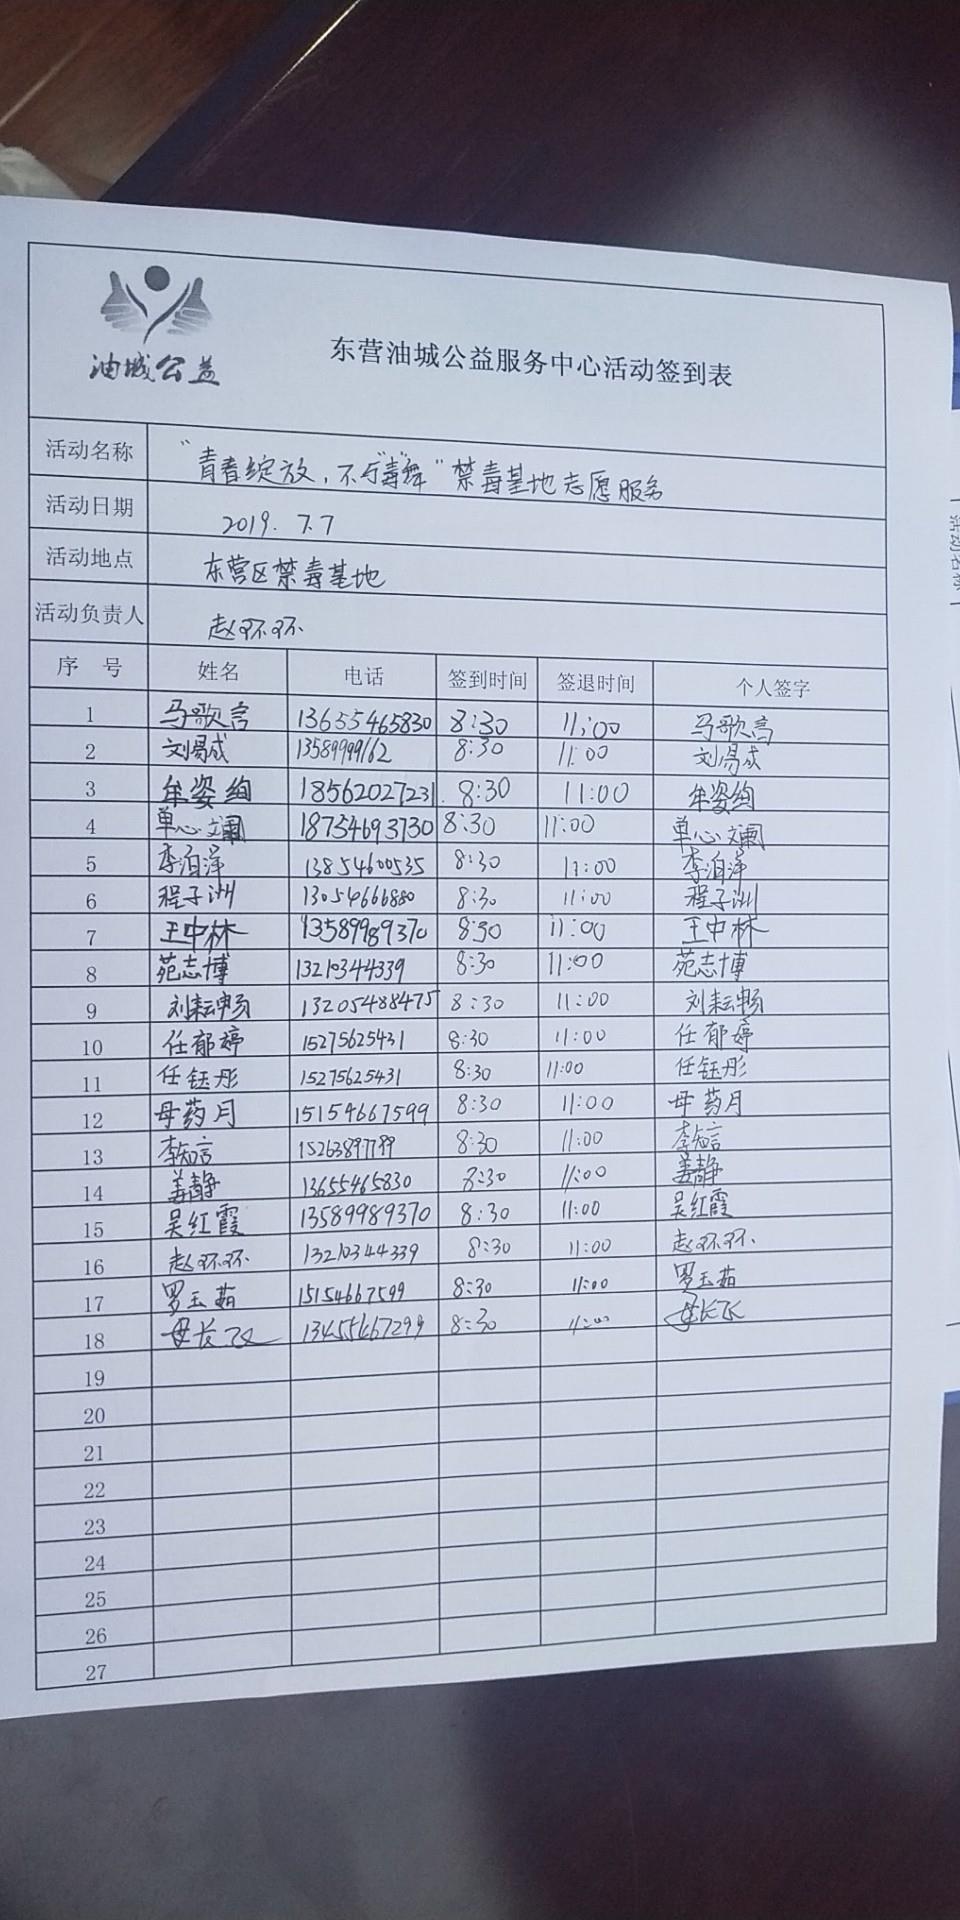 油城公益
东营油城公益服务中心活动签到表
活动名称 “青春绽放，不与“毒”舞”禁毒基地志愿服务
活动日期 2019.7.7
活动地点 东营区禁毒基地
活动负责人 赵环环
序号 姓名 电话 签到时间 签退时间 个人签字
1 马歌言 13655465830 8:30 11:00 马歌言
2 刘易成 13589999162 8:30 11:00 刘易成
3 牟姿绚 18562027231 8:30 11:00 牟姿绚
4 单心斓 18754693730 8:30 11:00 单心斓
5 李泊泽 13854600535 8:30 11:00 李泊泽
6 程子洲 13054666880 8:30 11:00 程子洲
7 王中林 13589989370 8:30 11:00 王中林
8 苑志博 13210344339 8:30 11:00 苑志博
9 刘耘畅 13205488475 8:30 11:00 刘耘畅
10 任郁婷 15275625431 8:30 11:00 任郁婷
11 任钰彤 15275625431 8:30 11:00 任钰彤
12 母药月 15154667599 8:30 11:00 母药月
13 李知言 15263897799 8:30 11:00 李知言
14 姜静 13655465830 8:30 11:00 姜静
15 吴红霞 13589989370 8:30 11:00 吴红霞
16 赵环环 13210344339 8:30 11:00 赵环环
17 罗玉茹 15154667599 8:30 11:00 罗玉茹
18 母长飞 13455467299 8:30 11:00 母长飞
19
20
21
22
23
24
25
26
27